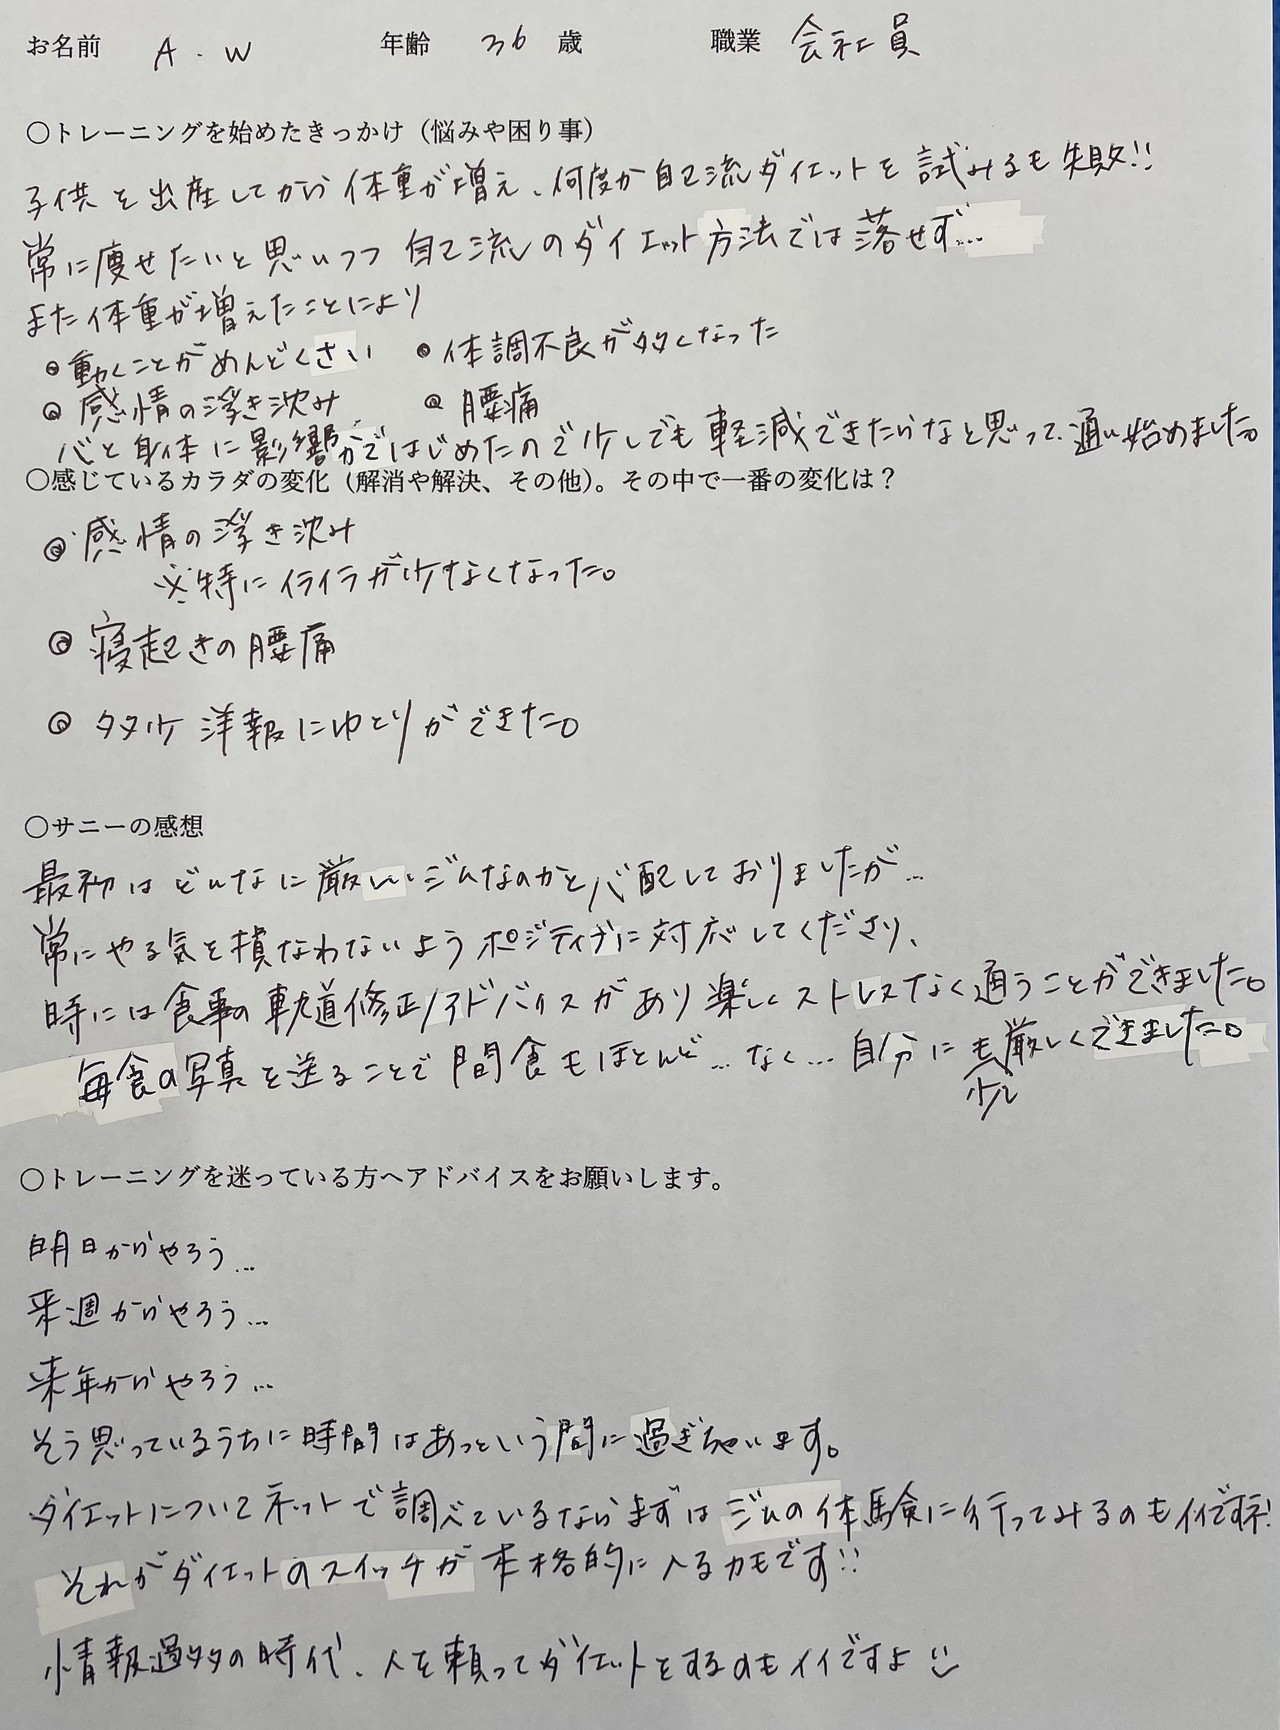 お名前 A.W 年齢 36 歳 職業 会社員
○トレーニングを始めたきっかけ（悩みや困り事）
子供を出産してから体重が増え、何度か自己流ダイエットを試みるも失敗!!
常に痩せたいと思いつつ自己流のダイエット方法では落せず…
また体重が増えたことにより
●動くことがめんどくさい ●体調不良が多くなった
●感情の浮き沈み ●腰痛
心と身体に影響がではじめたので少しでも軽減できたらなと思って、通い始めました。
○感じているカラダの変化（解消や解決、その他）。その中で一番の変化は？
◎感情の浮き沈み
※特にイライラが少なくなった。
◎寝起きの腰痛
◎多少洋報にゆとりができた。
○サニーの感想
最初はどんなに厳しいジムなのかと心配しておりましたが…
常にやる気を損なわないようポジティブに対応してくださり、
時には食事の軌道修正/アドバイスがあり楽しくストレスなく通うことができました。
毎食の写真を送ることで間食もほとんど…なく…自分にも少し厳しくできました。
○トレーニングを迷っている方へアドバイスをお願いします。
明日からやろう…
来週からやろう…
来年からやろう…
そう思っているうちに時間はあっという間に過ぎちゃいます。
ダイエットについてネットで調べているならまずはジムの体験に行ってみるのもイイですネ!
それがダイエットのスイッチが本格的に入るカモです!!
情報過多の時代、人を頼ってダイエットをするのもイイですよ